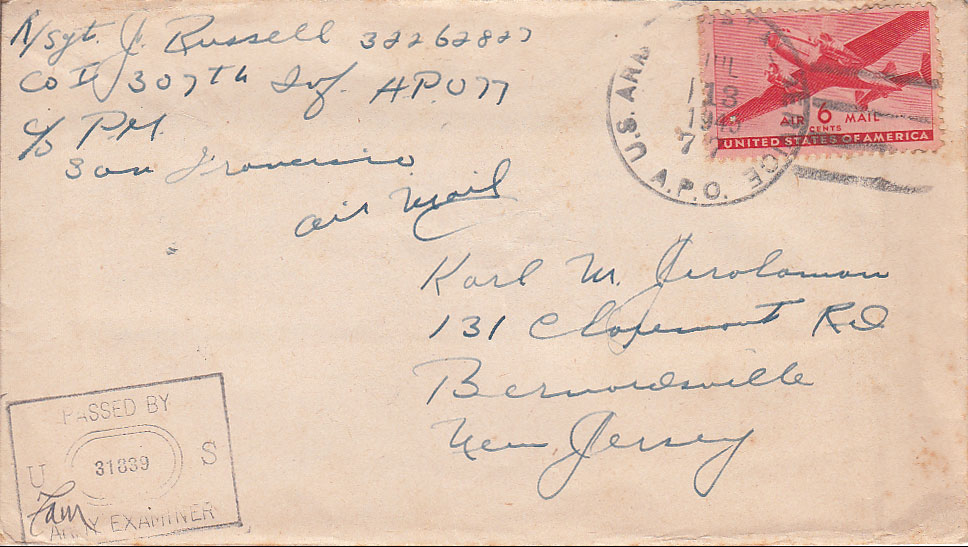 T/Sgt. J. Russell 32262827
Co I 307th Inf. APO 77
c/o PM.
San Francisco
Air Mail
U.S. ARMY
A.P.O.
JUL
13
194
7
AIR 6 MAIL
CENTS
UNITED STATES OF AMERICA
Karl M. Jerolaman
131 Claremont Rd
Bernardsville
New Jersey
PASSED BY
U 31839 S
ARMY EXAMINER